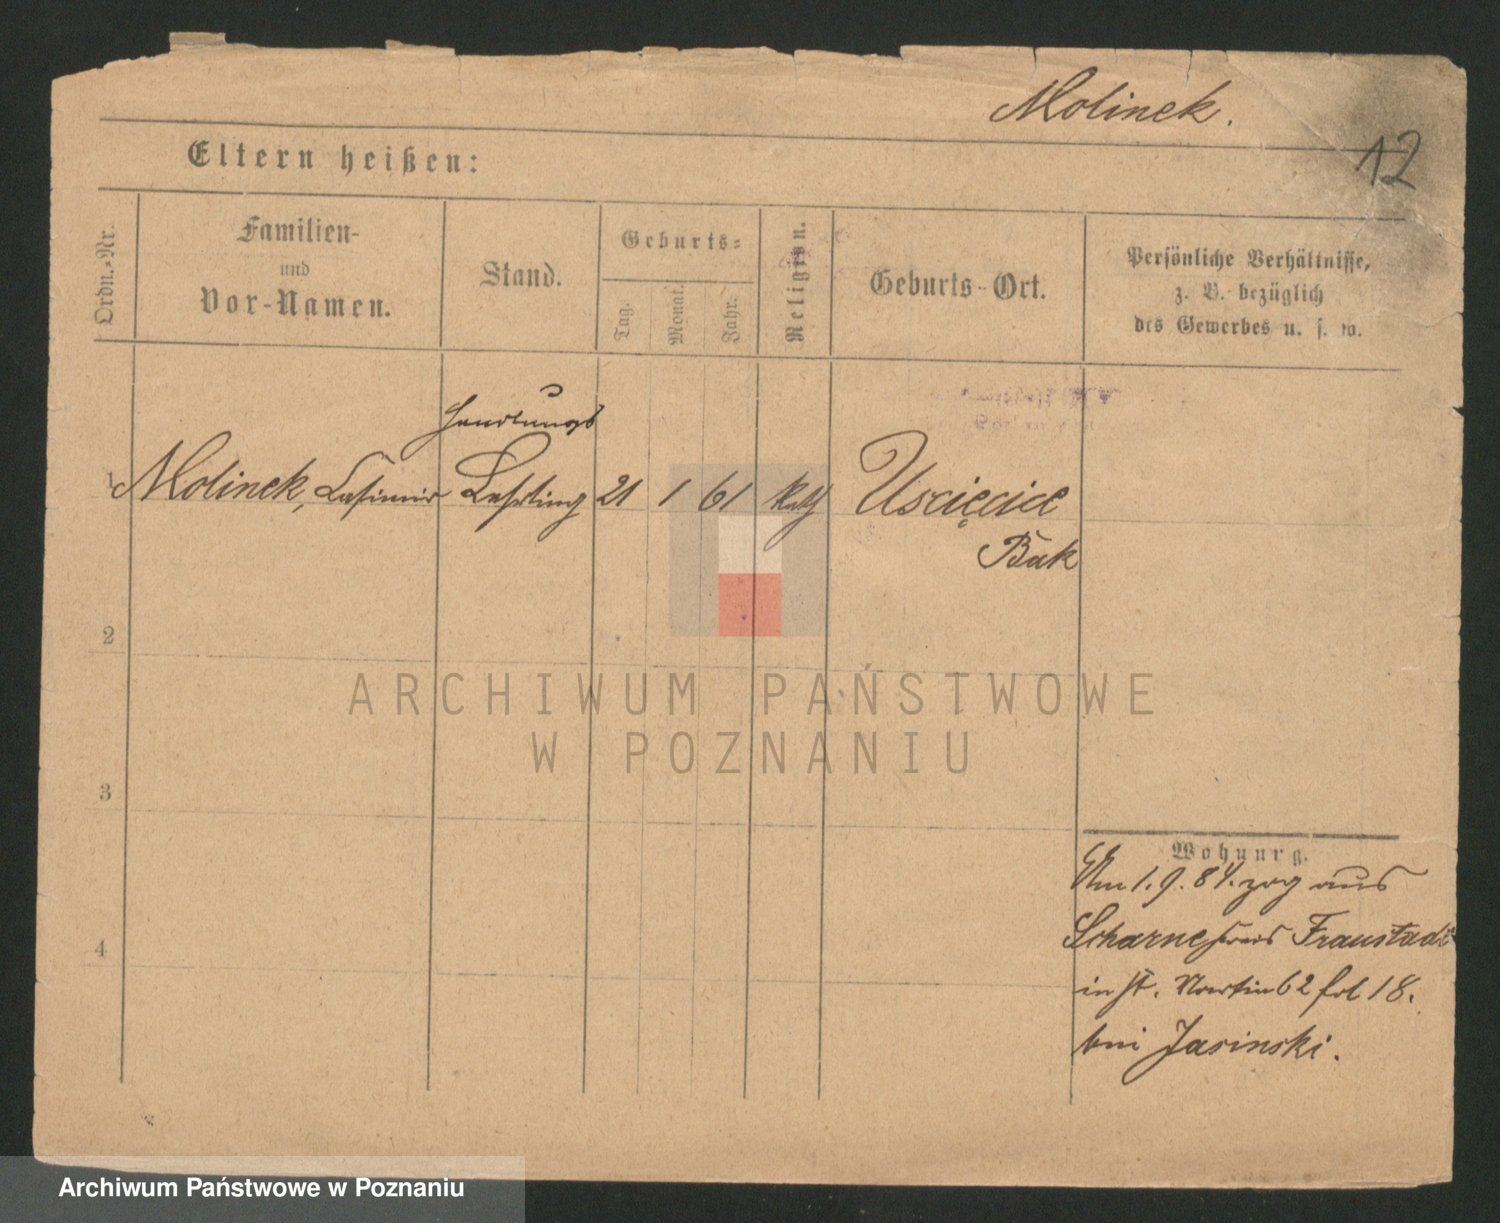 Molinek.
12
Eltern heißen:
Ordn.-Nr.
Familien-
und
Vor-Namen.
Stand.
Geburts-
Tag.
Monat.
Jahr.
Religion.
Geburts-Ort.
Persönliche Verhältnisse,
z. B. bezüglich
des Gewerbes u. s. w.
Handlungs
1 Molinek, Casimir Lehrling 21 1 61 kath Uscięcice
Buk
2
ARCHIWUM PAŃSTWOWE
W POZNANIU
3
Wohnung.
Am 1. 9. 84. zog aus
Scharne Kreis Fraustadt
in St. Martin 62 fol 18.
bei Jasinski.
4
Archiwum Państwowe w Poznaniu